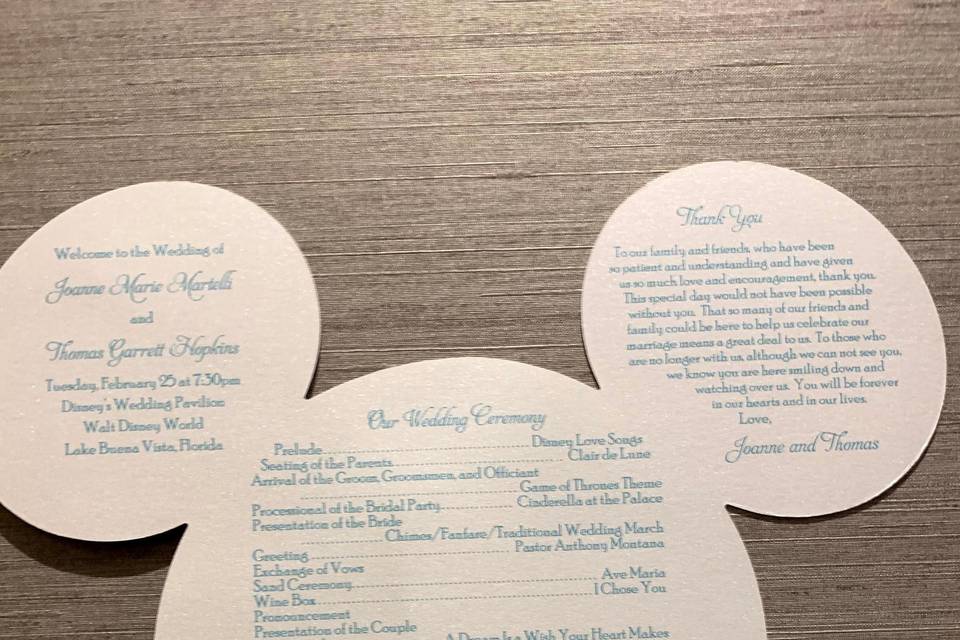 Welcome to the Wedding of
Joanne Marie Martelli
and
Thomas Garrett Hopkins
Tuesday, February 25 at 7:30pm
Disney's Wedding Pavilion
Walt Disney World
Lake Buena Vista, Florida
Our Wedding Ceremony
Prelude Disney Love Songs
Seating of the Parents Clair de Lune
Arrival of the Groom, Groomsmen, and Officiant
Game of Thrones Theme
Processional of the Bridal Party Cinderella at the Palace
Presentation of the Bride
Chimes/Fanfare/Traditional Wedding March
Greeting Pastor Anthony Montana
Exchange of Vows
Sand Ceremony Ave Maria
Wine Box I Chose You
Pronouncement
Presentation of the Couple
A Dream Is a Wish Your Heart Makes
Thank You
To our family and friends, who have been
so patient and understanding and have given
us so much love and encouragement, thank you.
This special day would not have been possible
without you. That so many of our friends and
family could be here to help us celebrate our
marriage means a great deal to us. To those who
are no longer with us, although we can not see you,
we know you are here smiling down and
watching over us. You will be forever
in our hearts and in our lives.
Love,
Joanne and Thomas